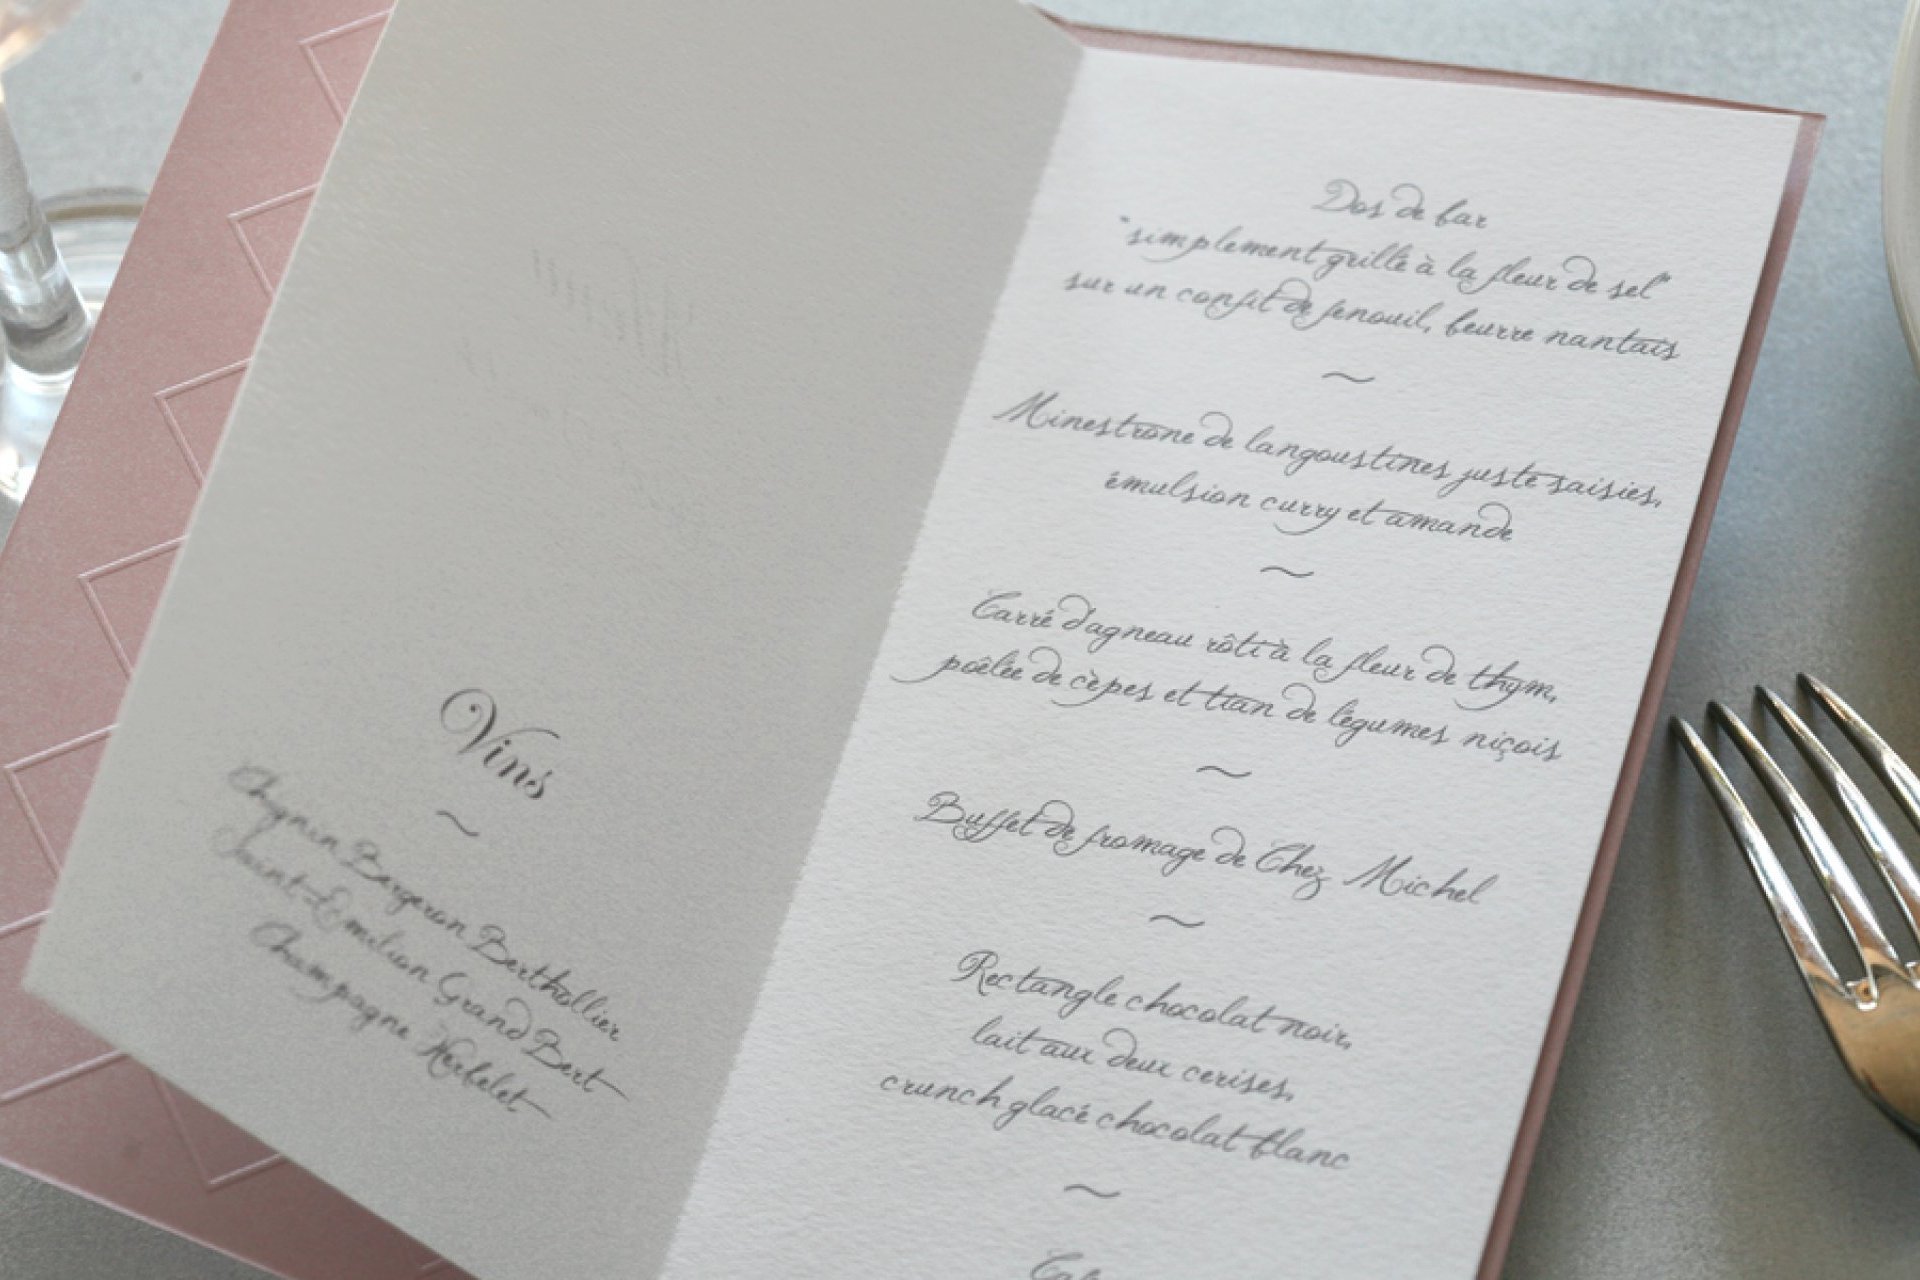 Vins
~
Chignin Bergeron Berthollier
Saint-Emilion Grand Bert
Champagne Herbelet
Dos de bar
"simplement grillé à la fleur de sel"
sur un confit de fenouil, beurre nantais
~
Minestrone de langoustines juste saisies,
émulsion curry et amande
~
Carré d'agneau rôti à la fleur de thym,
poêlée de cèpes et tian de légumes niçois
~
Buffet de fromage de Chez Michel
~
Rectangle chocolat noir,
lait aux deux cerises,
crunch glacé chocolat blanc
~